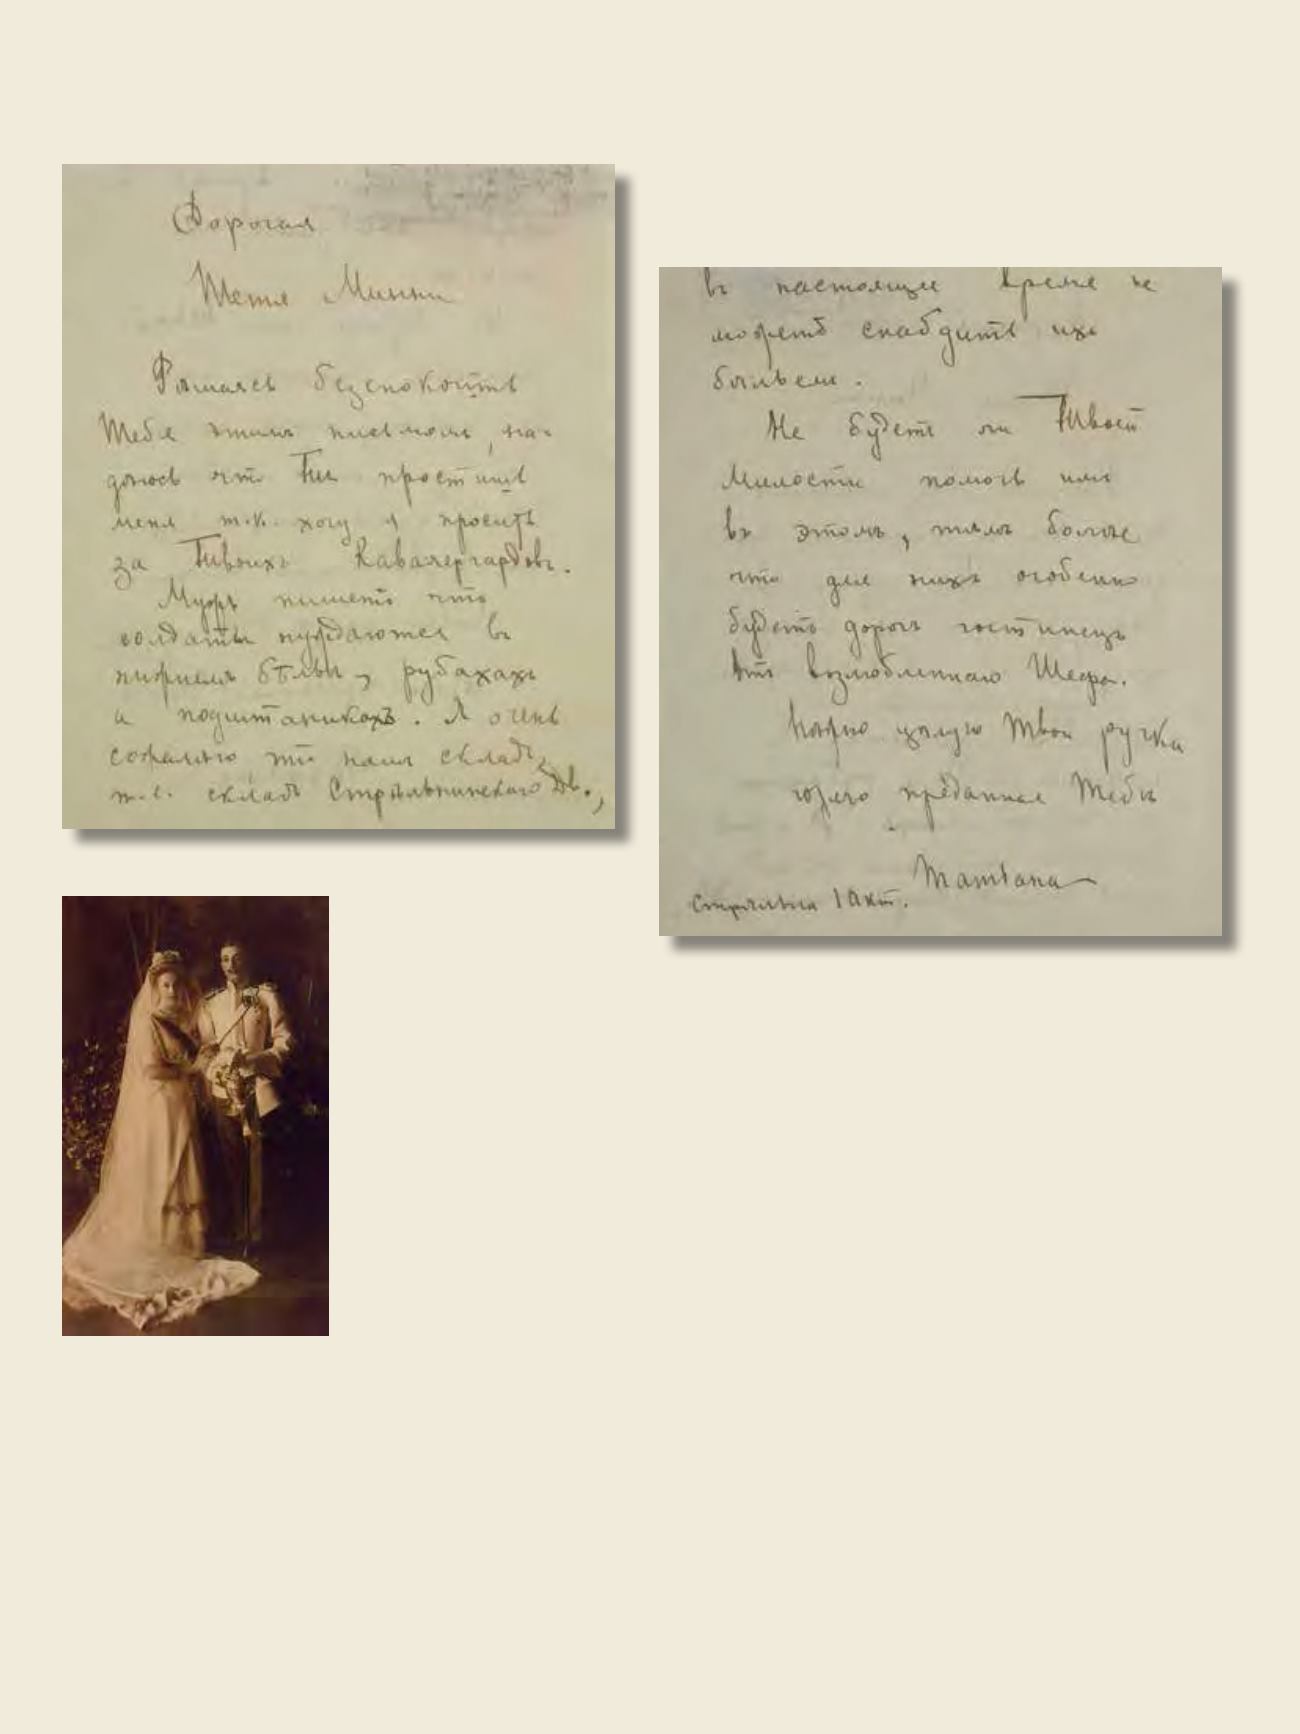 Дорогая
Тетя Минни
Рѣшаюсь безспокоить
Тебя этимъ письмомъ, на-
дѣюсь что Ты простишь
меня т.к. хочу я просить
за Твоихъ Кавалергардовъ.
пишетъ что
солдаты нуждаются въ
нижнемъ бѣльи, рубахахъ
и подштаникахъ. Я очень
сожалѣю что нашъ складъ,
т.е. складъ Стрѣльнинскаго Дв.,
въ настоящее время не
можетъ снабдить ихъ
бѣльемъ.
Не будетъ ли Твоей
Милости помочь имъ
въ этомъ, тѣмъ болѣе
что для нихъ особенно
будетъ дорогъ гостинецъ
отъ возлюбленнаго Шефа.
Нѣжно цѣлую Твои ручки
горячо преданная Тебѣ
Татіана
Стрѣльна 1 Окт.